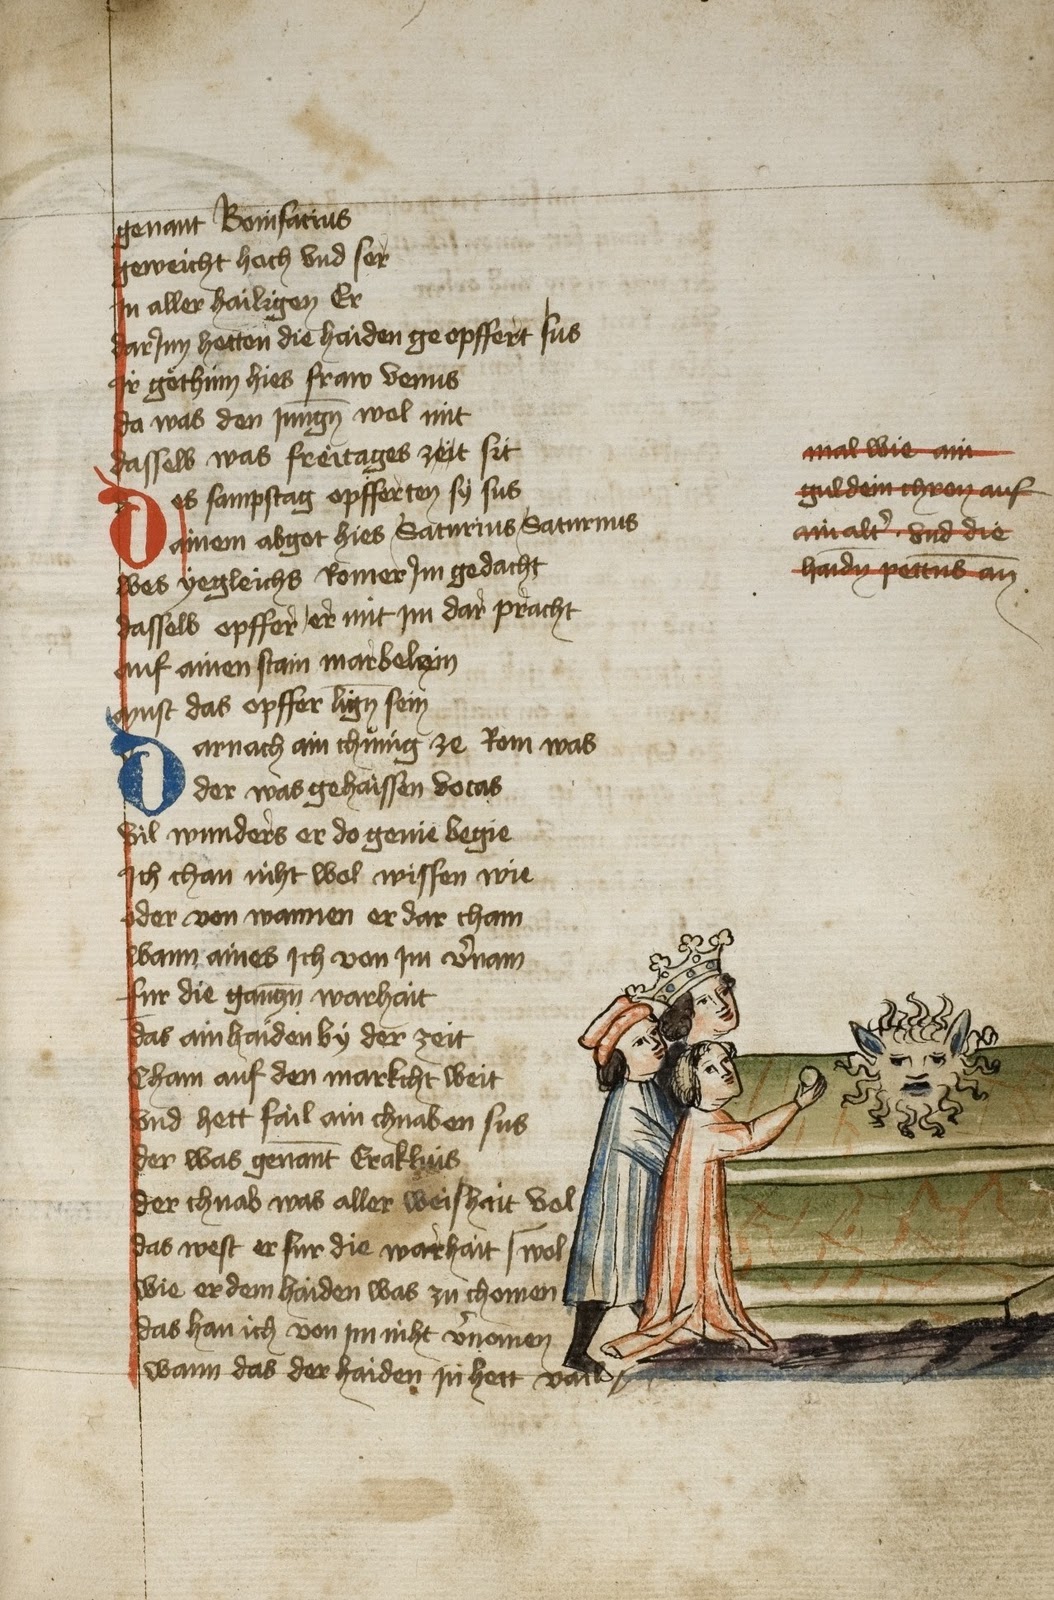 genant Bonifacius
geweicht hoch vnd ser
In aller hailigen Er
darJnn hetten die haiden ge opffert sus
Ir göthinn hies fraw venus
da was den Jungn wol mit
dasselb was freitages zeit sit
Des sampstag opfferten sÿ sus
ainem abgot hies Saturius Saturnus
wes yegleichs Romer Jm gedacht
dasselb opffer er mit Im dar pracht
auf ainen stain marbelein
must das opffer lign sein
Darnach ain chünig ze Rom was
der was gehaissen vocas
vil wunders er do genie begie
Ich chan niht wol wissen wie
oder von wannen er dar cham
wann aines Ich von Im v'nam
fur die gantzn warhait
das ain haiden bÿ der zeit
Cham auf den markcht weit
vnd hett fail ain chnaben sus
der was genant Eraklius
der chnab was aller weishait vol
das west er fur die warhait wol
wie er dem haiden was zu chomen
das han ich von Im niht v'nomen
wann das der haiden In hett vail
mal wie ain
guldein chron auf
ain alt' vnd die
haidn pettns an